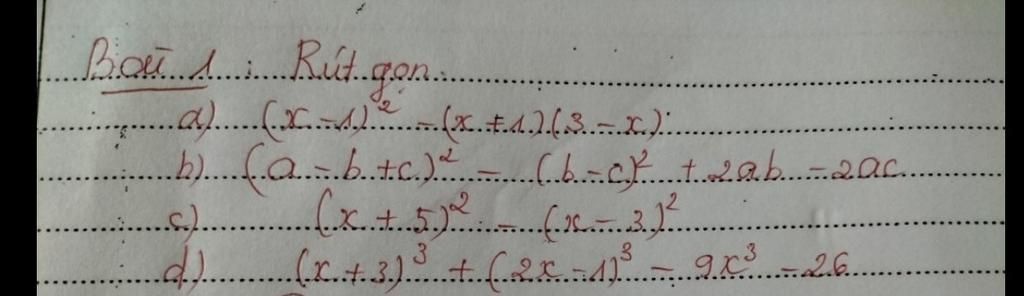 Bài 1 : Rút gọn.
a) (x-1)² - (x+1)(3-x)
b) (a-b+c)² - (b-c)² + 2ab - 2ac
c) (x+5)² - (x-3)²
d) (x+3)³ + (2x-1)³ - 9x³ - 26